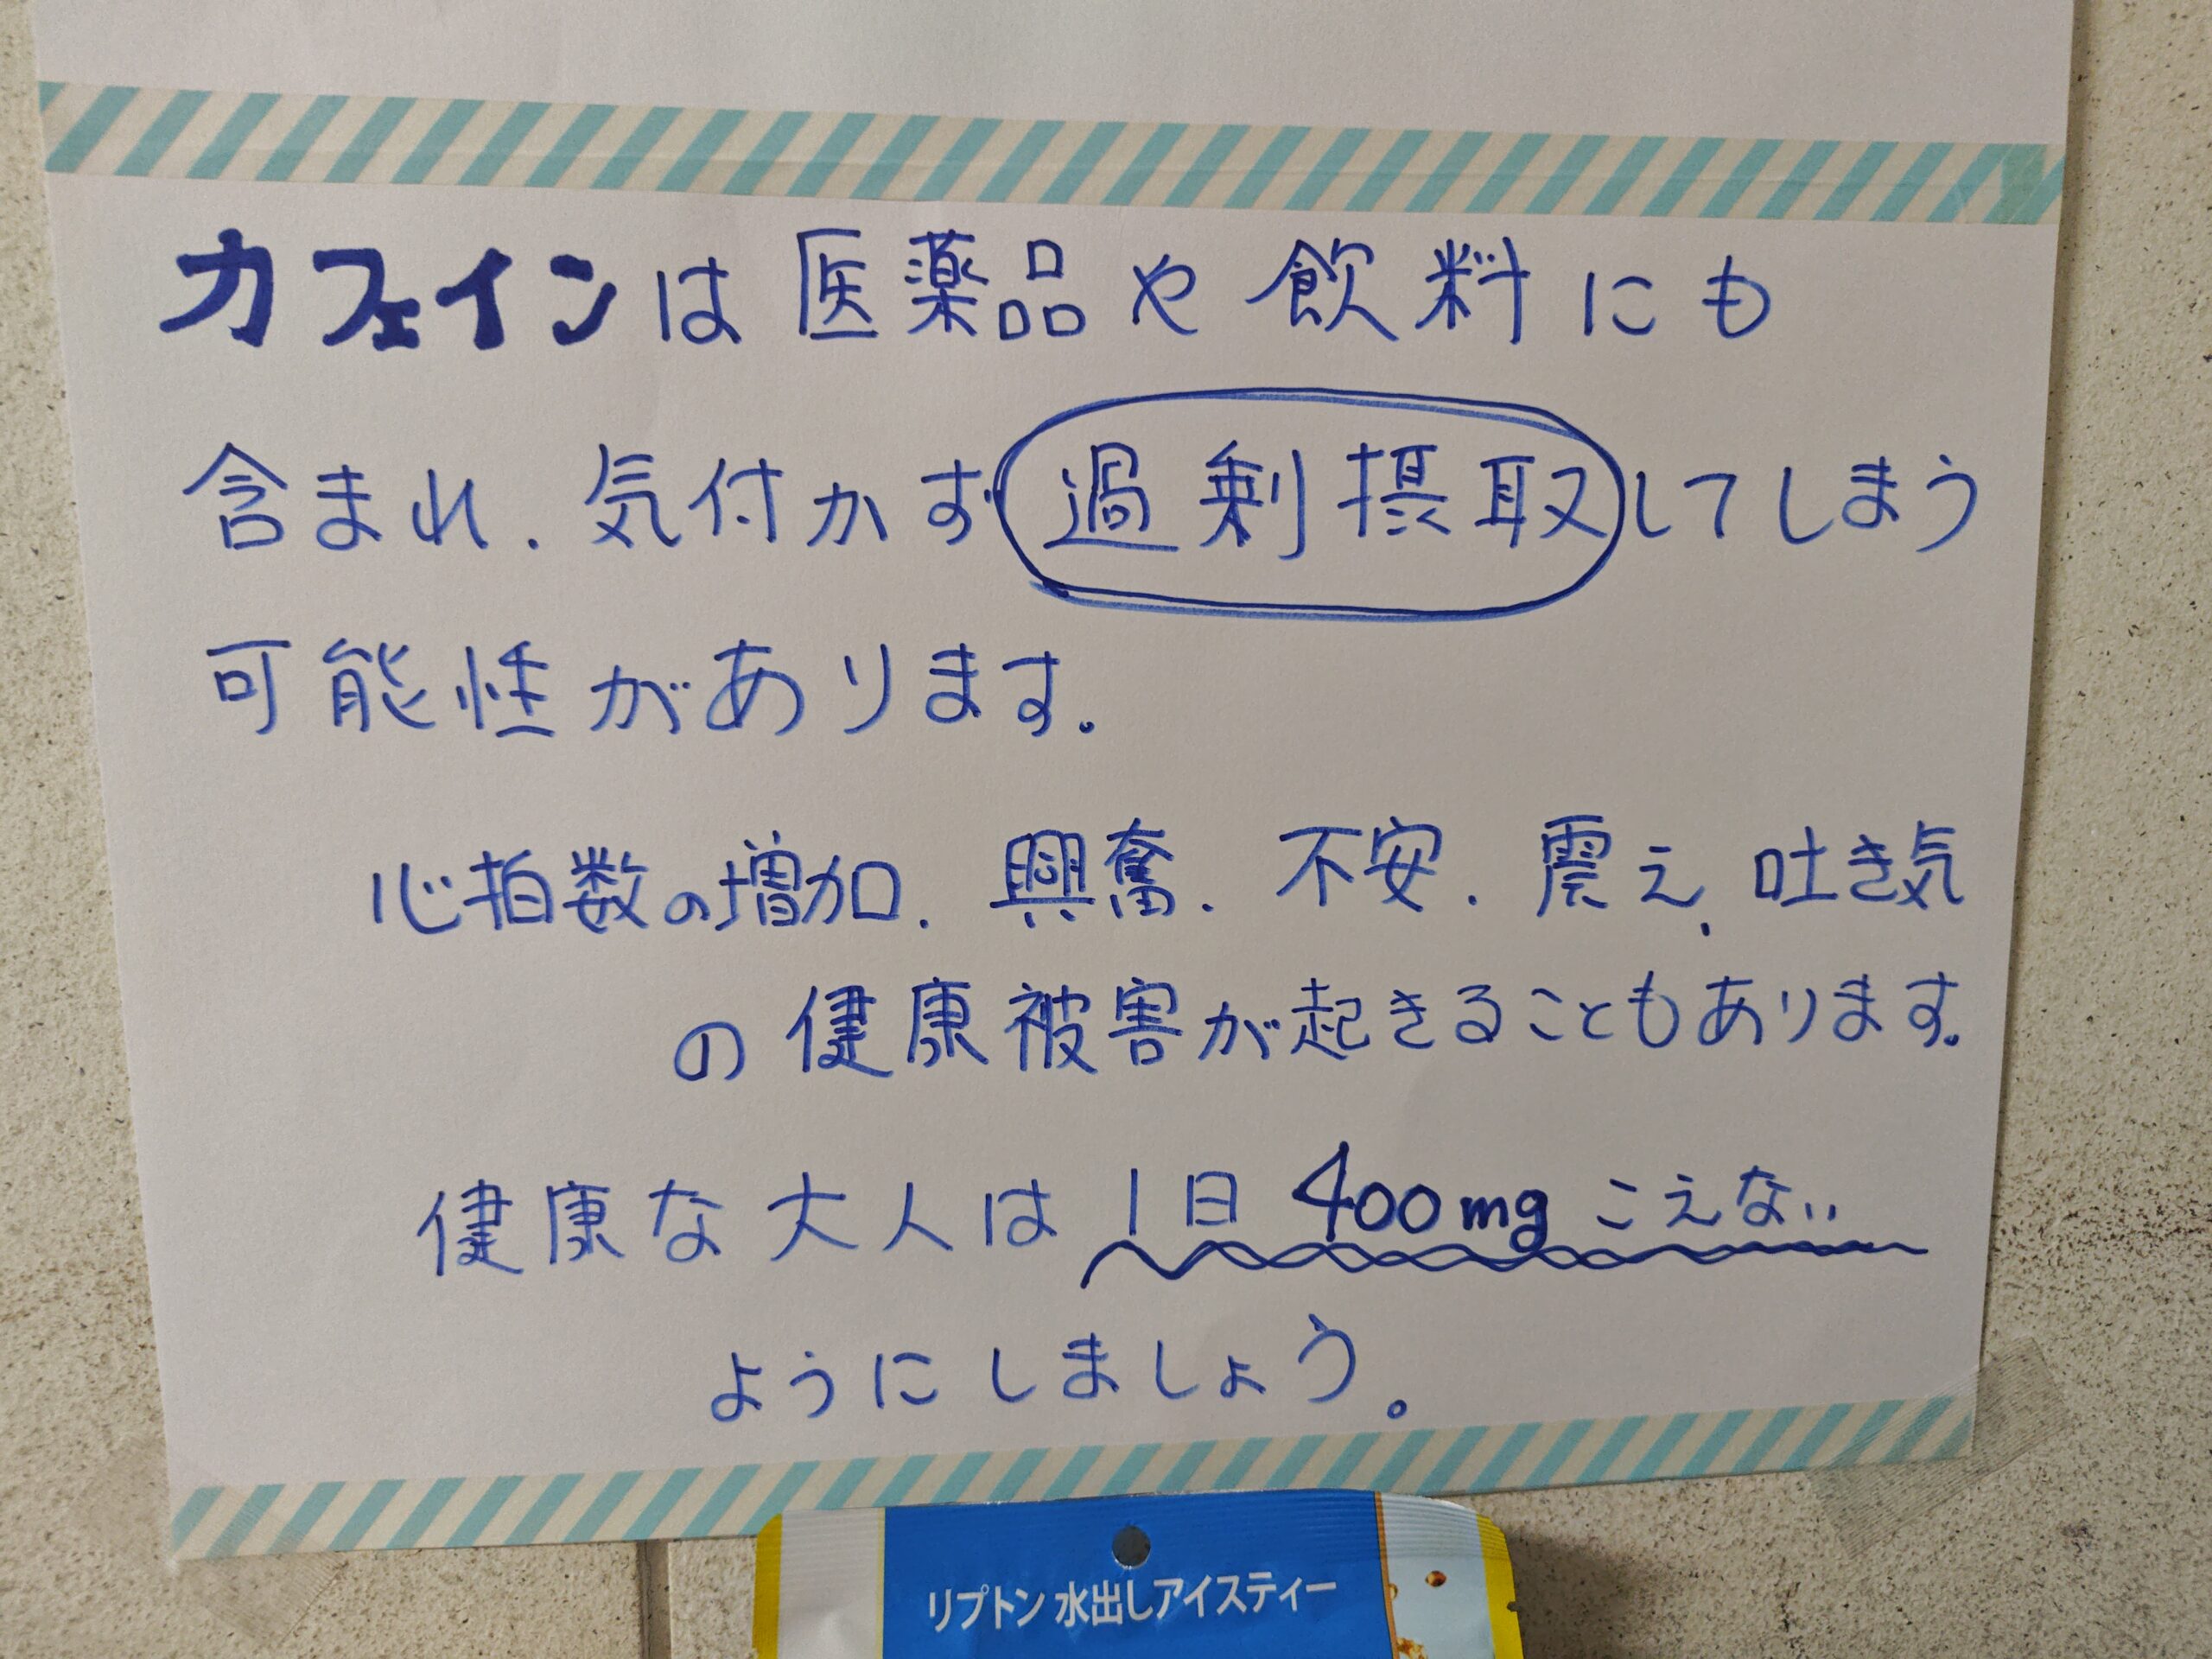 カフェインは医薬品や飲料にも
含まれ、気付かず過剰摂取してしまう
可能性があります。
心拍数の増加、興奮、不安、震え、吐き気
の健康被害が起きることもあります。
健康な大人は1日400mgこえない
ようにしましょう。
リプトン 水出しアイスティー